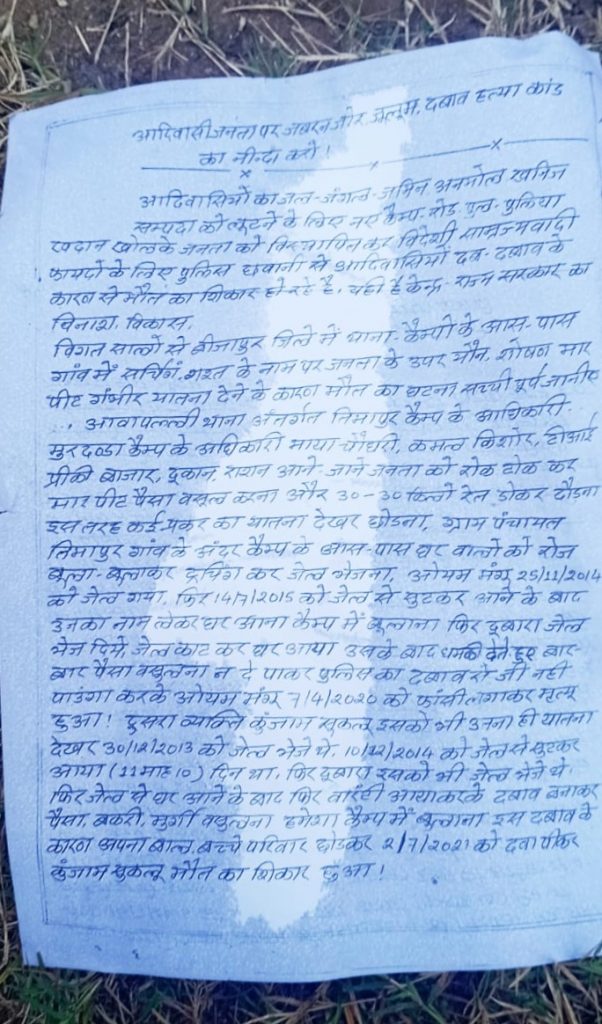 आदिवासी जनता पर जबरन जोर, जुलूम, दबाव हत्या कांड
का नीन्दा करो!
आदिवासियों का जल-जंगल-जमिन अनमोल खनिज
सम्पदा को लूटने के लिए नए कैम्प, रोड, पुल-पुलिया
खदान खोलके जनता को विस्थापित कर विदेशी साम्राज्यवादी
फायदों के लिए पुलिस छावानी से आदिवासियों दब-दबाव के
कारण से मौत का शिकार हो रहे है, यही है केन्द्र-राज्य सरकार का
विनाश, विकास,
विगत सालो से बीजापुर जिले में थाना-कैम्पो के आस-पास
गांव में सर्चिंग, गश्त के नाम पर जनता के उपर यौन, शोषण मार
पीट गंभीर यातना देने के कारण मौत का घटना सच्ची पूर्ण जानीए
आवापल्ली थाना अंतर्गत तिमापुर कैम्प के आधिकारी-
मुरदण्डा कैम्प के अधिकारी माया चौधरी, कमल किशोर, टीआई
बाजार, दूकान, राशन आने-जाने जनता को रोक टोक कर
मार पीट पैसा वसूल करना और 30-30 किलो रेत डोकर दौड़ना
इस तरह कई प्रकर का यातना देखर छोडना, ग्राम पंचायत
तिमापुर गांव के अंदर कैम्प के आस-पास घर वालो को रोज
बुला-बुलाकर कर जेल भेजना, ओयम मंगू 25/11/2014
को जेल गया, फिर 14/7/2015 को जेल से छुटकर आने के बाद
उनका नाम लेकर घर आना कैम्प में बुलाना फिर दूबारा जेल
भेज दिये, जेल काट कर घर आया उसके बाद धमकी देते हुए बार-
बार पैसा वसुलना न दे पाकर पुलिस का दबाव से जी नही
पाउंगा करके ओयम मंगू 7/4/2020 को फांसी लगाकर मृत्यू
हुआ! दुसरा व्यक्ति कुंजाम सुकलू इसको भी उतना ही यातना
देखर 30/12/2013 को जेल भेजे थे, 10/12/2014 को जेल से छुटकर
आया (11 माह 10) दिन था, फिर दूबारा इसको भी जेल भेजे थे
फिर जेल से घर आने के बाद फिर वारंटी आयाकरके दबाव बनाकर
पैसा, बकरी, मुर्गी वसुलना हमेशा कैम्प में बुलाना इस दबाव के
कारण अपना बाल, बच्चे परिवार छोडकर 2/7/2021 को दवा पीकर
कुंजाम सुकलू मौत का शिकार हुआ!